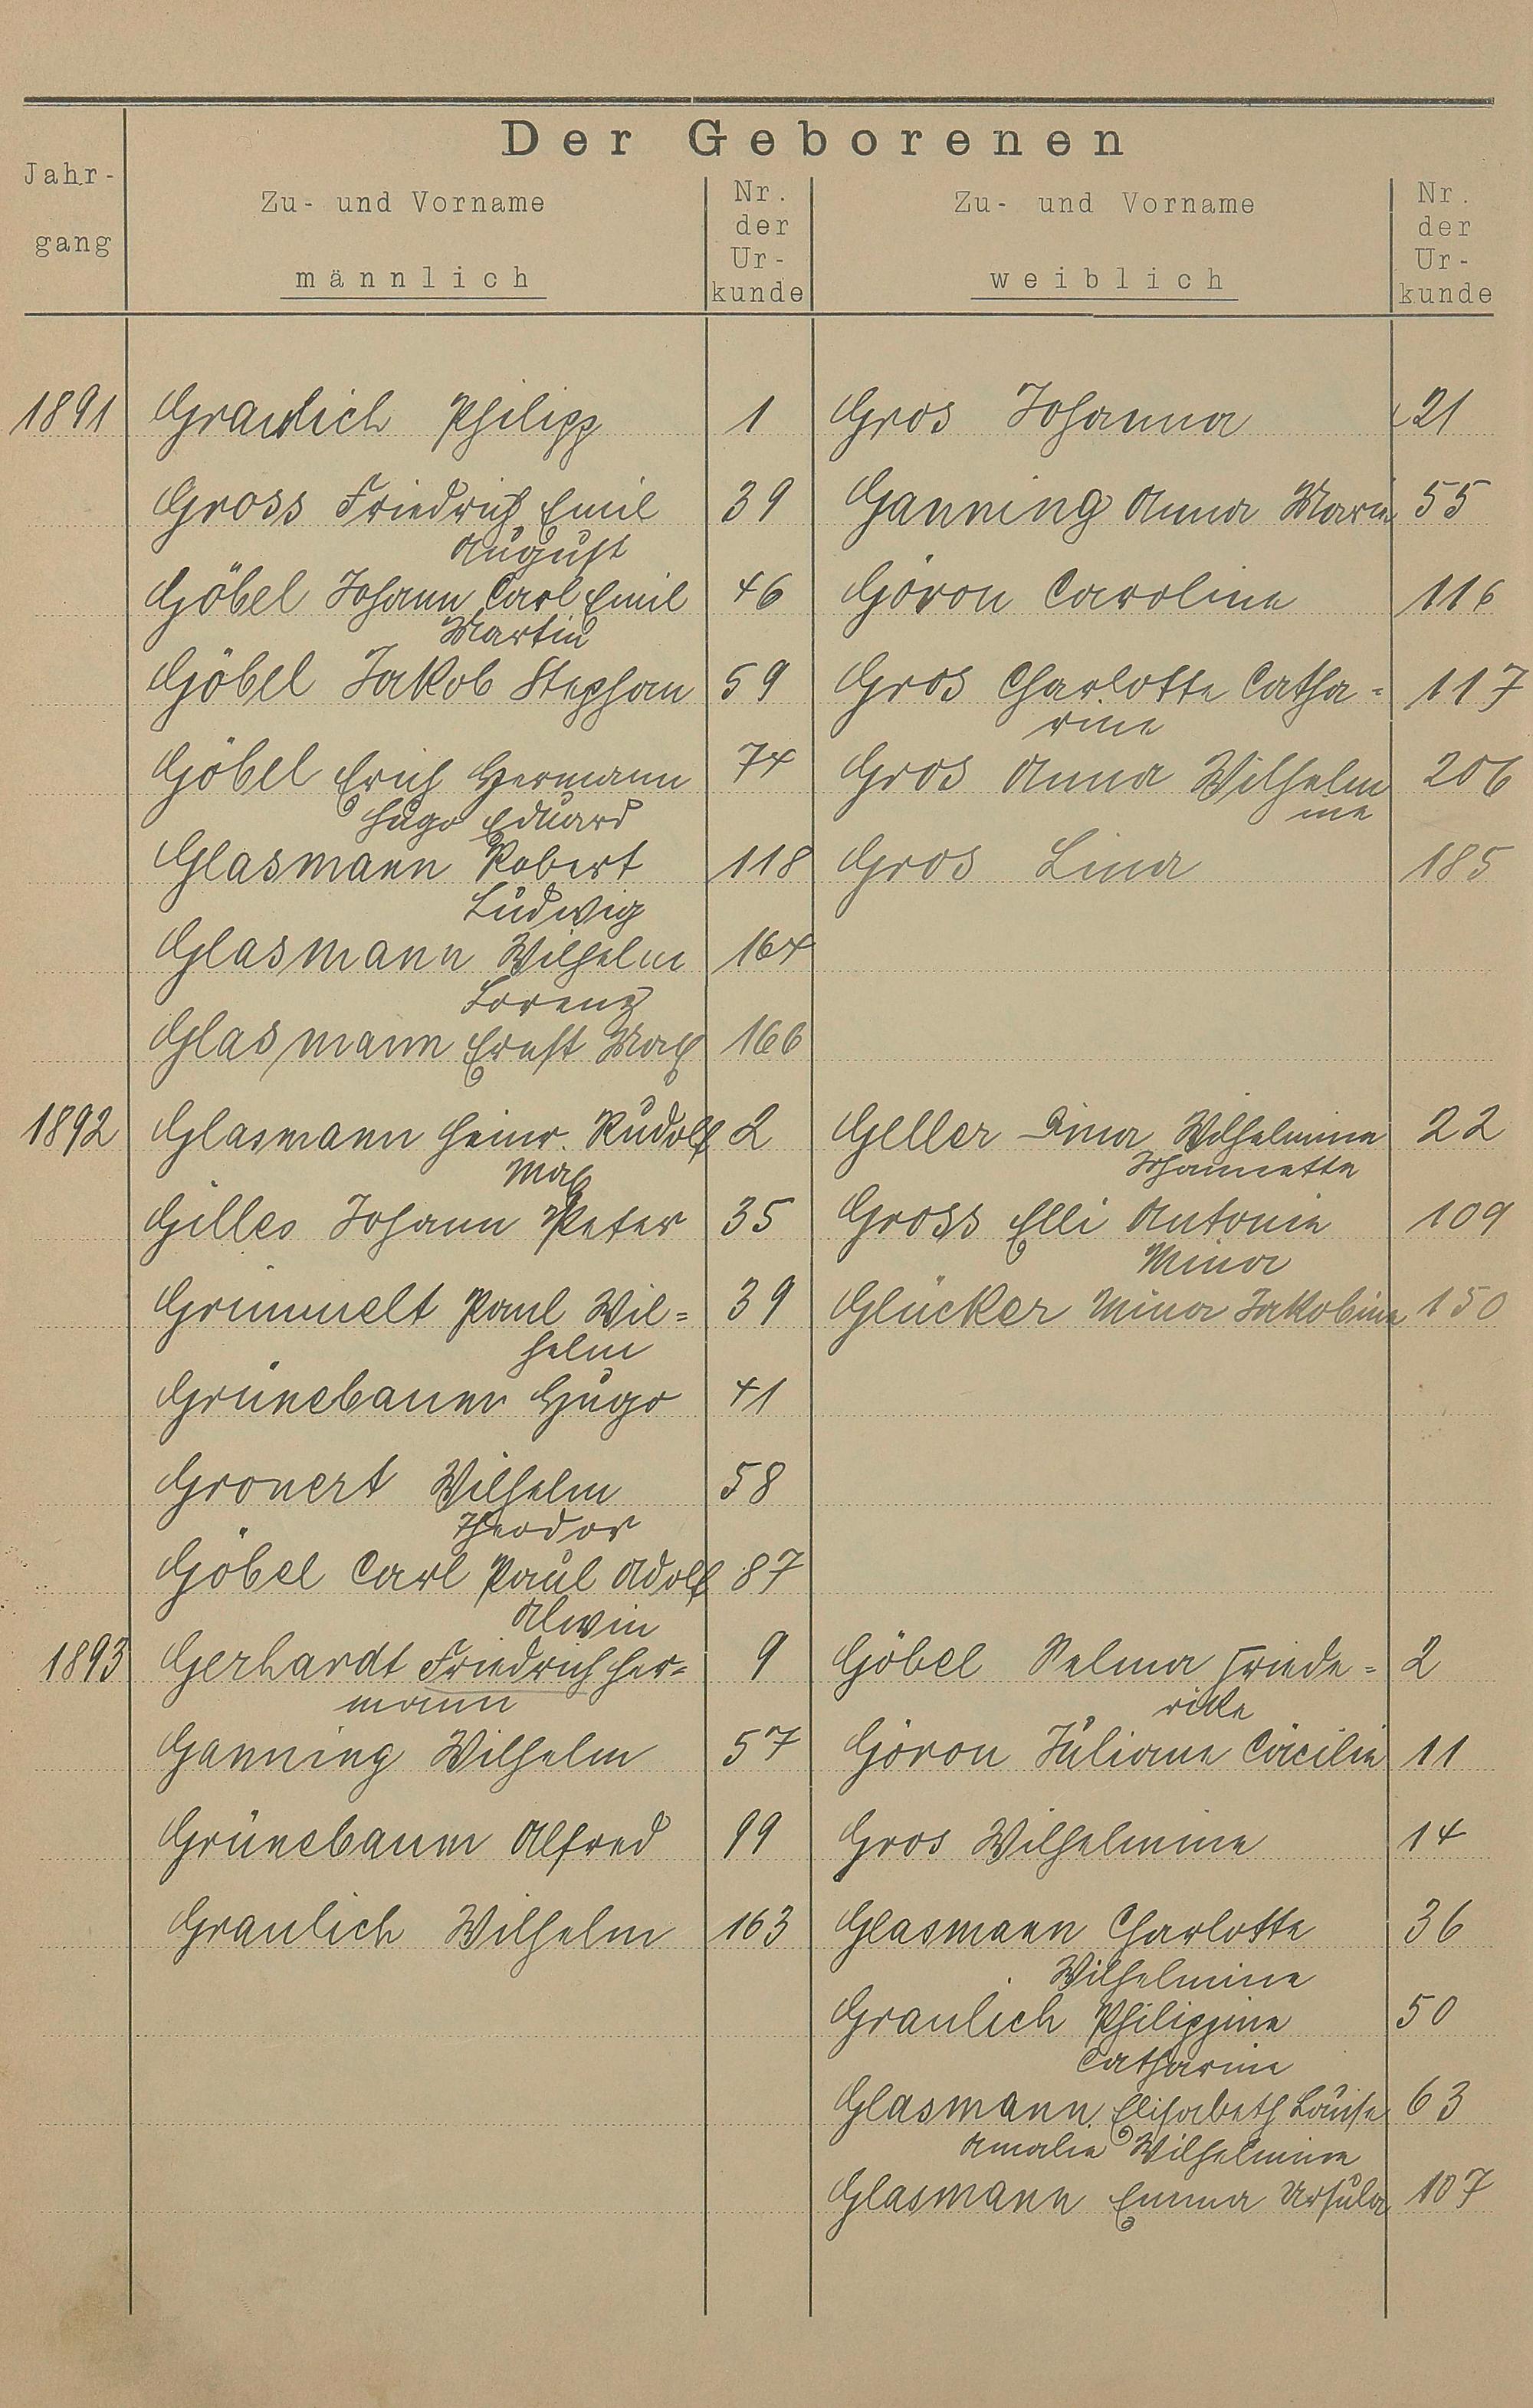 Der Geborenen
Jahr-
gang
Zu- und Vorname
männlich
Nr.
der
Ur-
kunde
Zu- und Vorname
weiblich
Nr.
der
Ur-
kunde
1891 Graulich Philipp 1 Gros Johanna 21
Gross Friedrich Emil 39 Ganning Anna Maria 55
August
Göbel Johann Carl Emil 46 Göron Caroline 116
Martin
Göbel Jakob Stephan 59 Gros Charlotte Catha= 117
rine
Göbel Erich Hermann 74 Gros Anna Wilhelm 206
Hugo Eduard ine
Glasmann Robert 118 Gros Lina 185
Ludwig
Glasmann Wilhelm 164
Lorenz
Glasmann Ernst Max 166
1892 Glasmann Heinr. Rudolf 2 Geller Lina Wilhelmine 22
Max Johannette
Gilles Johann Peter 35 Gross Elli Antonie 109
Mina
Grimmelt Paul Wil= 39 Glücker Mina Jakobine 150
helm
Grünebaum Hugo 41
Gronert Wilhelm 58
Theodor
Göbel Carl Paul Adolf 87
Alwin
1893 Gerhardt Friedrich Her= 9 Göbel Selma Friede= 2
mann ricke
Ganning Wilhelm 57 Göron Juliane Cäcilie 11
Grünebaum Alfred 99 Gros Wilhelmine 14
Graulich Wilhelm 163 Glasmann Charlotte 36
Wilhelmine
Graulich Philippine 50
Catharine
Glasmann Elisabeth Louise 63
Amalie Wilhelmine
Glasmann Emma Ursula 107